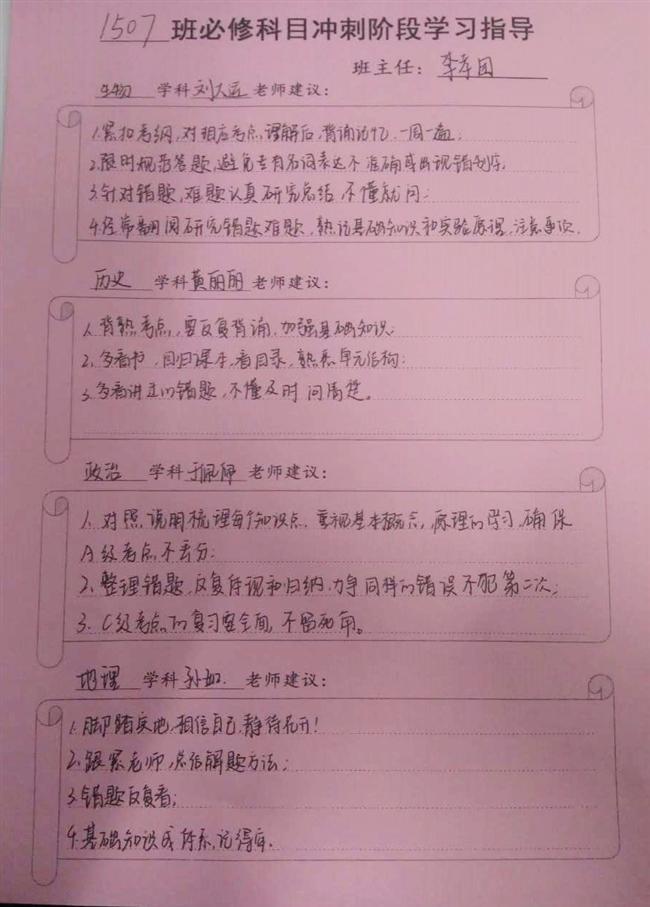 1507 班必修科目冲刺阶段学习指导
班主任：李幸团
生物 学科刘大运老师建议：
1.紧扣考纲,对相应考点,理解后,背诵记忆,一周一遍;
2.限时规范答题,避免专有名词表达不准确或出现错别字;
3.针对错题,难题认真研究总结,不懂就问;
4.经常翻阅研究错题难题,熟记基础知识和实验原理,注意事项.
历史 学科黄丽丽老师建议：
1、背熟考点,要反复背诵,加强基础知识;
2、多看书,回归课本,看目录,熟悉单元结构;
3、多看讲过的错题,不懂及时问清楚。
政治 学科于佩伊老师建议：
1、对照说明梳理每个知识点,重视基本概念,原理的学习,确保
A级考点不丢分;
2、整理错题,反复体现和归纳,力争同样的错误不犯第二次;
3、C级考点的复习要全面,不留死角。
地理 学科孙如.老师建议：
1.脚踏实地,相信自己,静待花开!
2.跟紧老师,总结解题方法;
3.错题反复看;
4.基础知识成体系,记得牢.